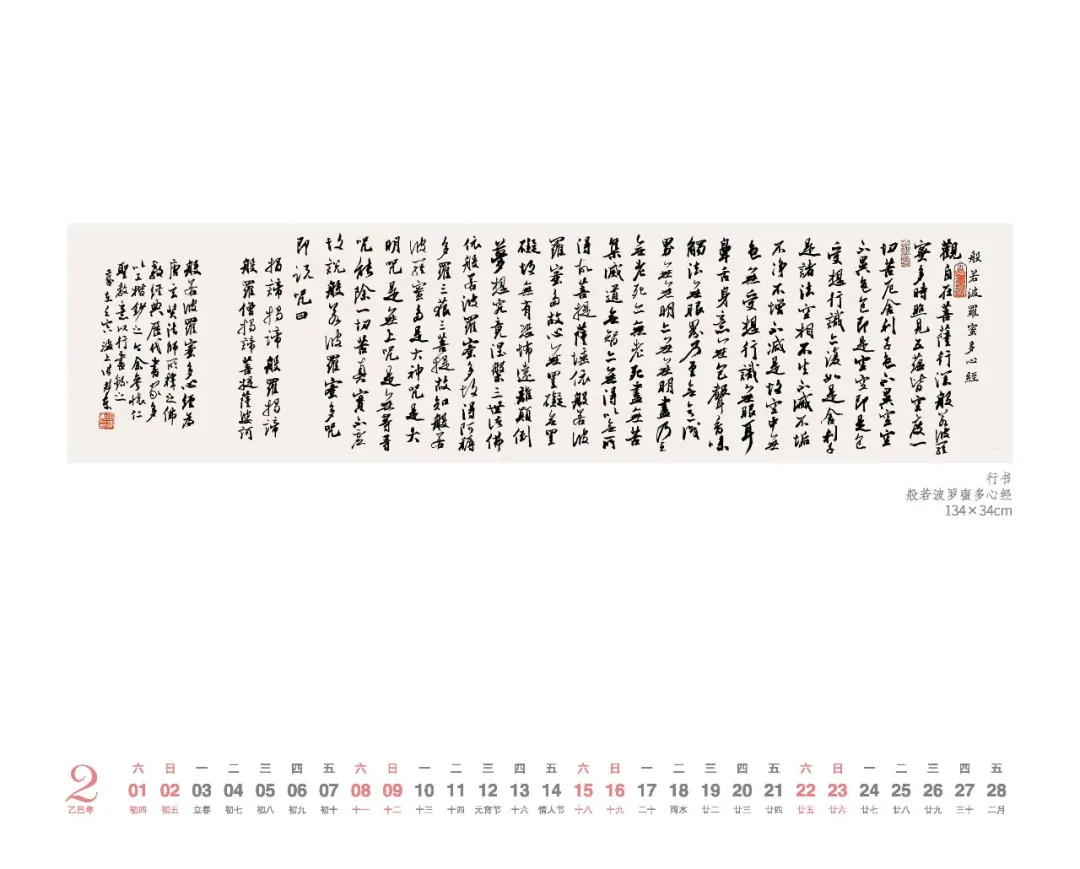 般若波羅蜜多心經
觀自在菩薩行深般若波羅
蜜多時照見五蘊皆空度一
切苦厄舍利子色不異空空
不異色色即是空空即是色
受想行識亦復如是舍利子
是諸法空相不生不滅不垢
不淨不增不減是故空中無
色無受想行識無眼耳
鼻舌身意無色聲香味
觸法無眼界乃至無意識
界無無明亦無無明盡乃至
無老死亦無老死盡無苦
集滅道無智亦無得以無所
得故菩提薩埵依般若波
羅蜜多故心無罣礙無罣
礙故無有恐怖遠離顛倒
夢想究竟涅槃三世諸佛
依般若波羅蜜多故得阿耨
多羅三藐三菩提故知般若
波羅蜜多是大神呪是大
明呪是無上呪是無等等
呪能除一切苦真實不虛
故說般若波羅蜜多呪
即說呪曰
揭諦揭諦般羅揭諦
般羅僧揭諦菩提薩婆訶
般若波羅蜜多心經為
唐玄奘法師所釋之佛
教經典歷代書家多
以楷鈔之今余參懷仁
聖教意以行書錄之
海上
行书
般若波罗蜜多心经
134×34cm
2
乙巳年
六 日 一 二 三 四 五 六 日 一 二 三 四 五 六 日 一 二 三 四 五 六 日 一 二 三 四 五
01 02 03 04 05 06 07 08 09 10 11 12 13 14 15 16 17 18 19 20 21 22 23 24 25 26 27 28
初四 初五 立春 初七 初八 初九 初十 十一 十二 十三 十四 元宵节 十六 情人节 十八 十九 二十 雨水 廿二 廿三 廿四 廿五 廿六 廿七 廿八 廿九 三十 二月